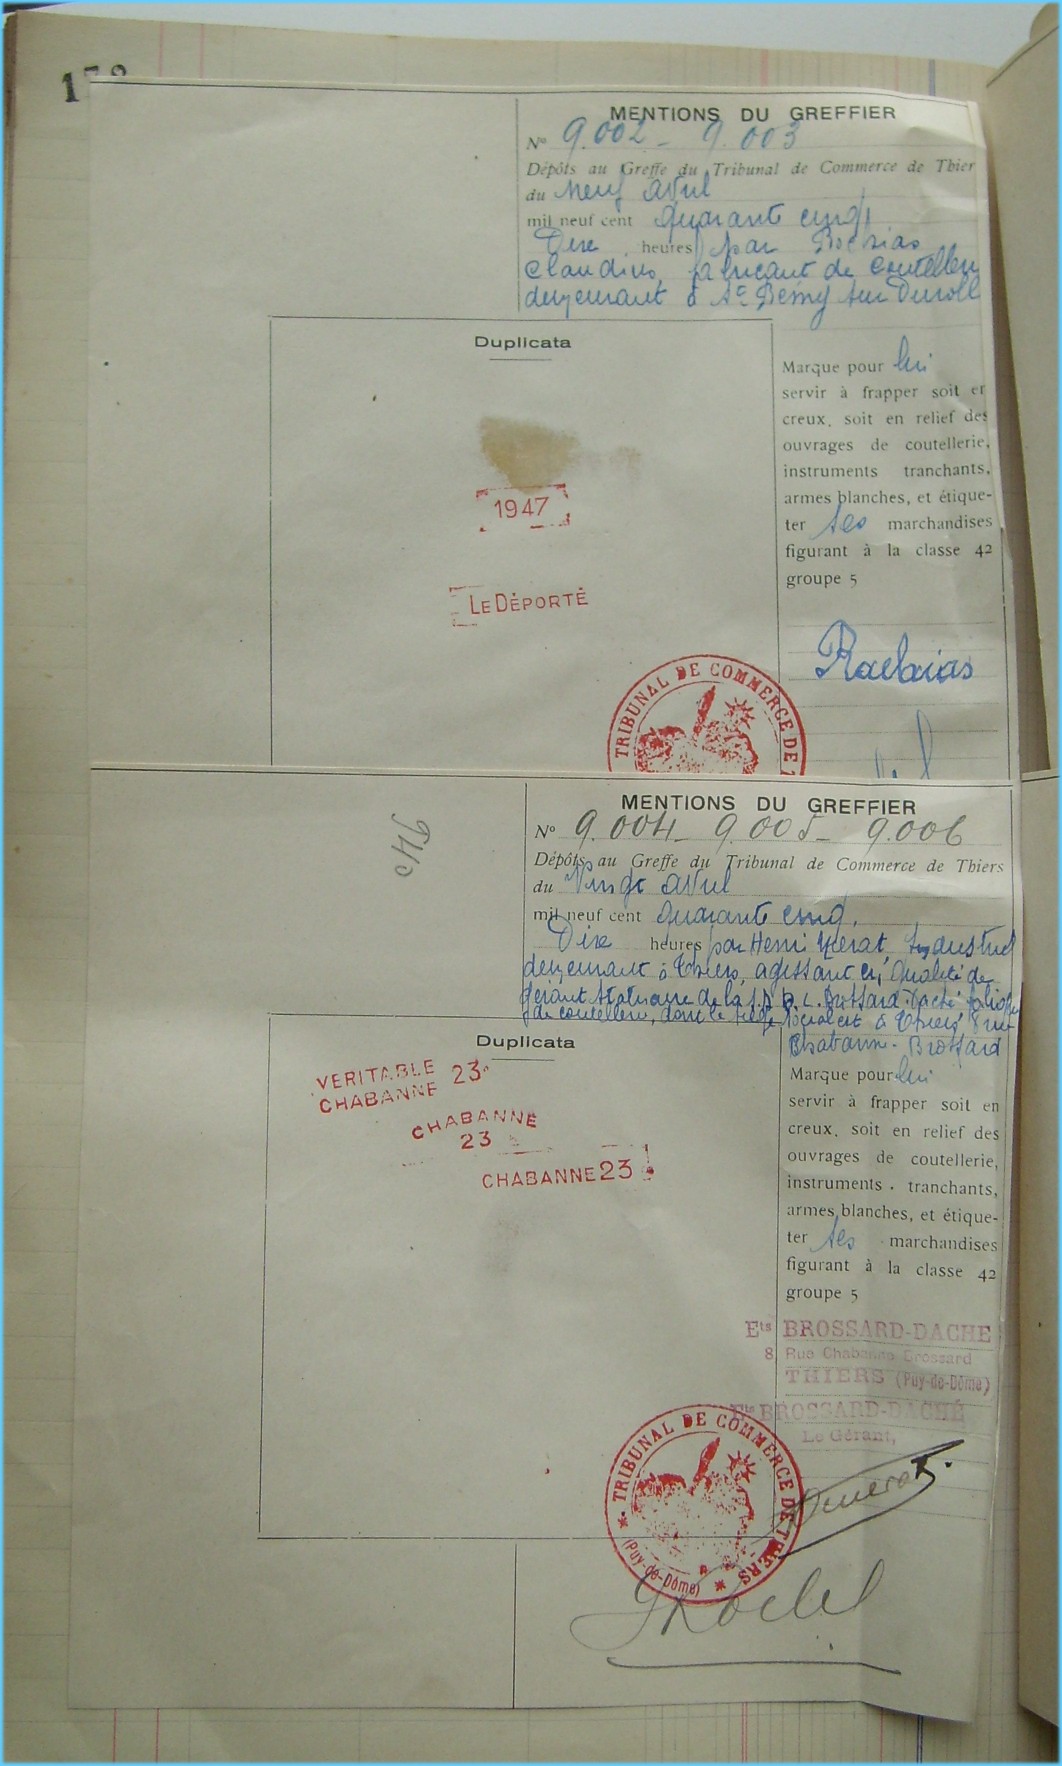 MENTIONS DU GREFFIER
N° 9.002 - 9.003
Dépôts au Greffe du Tribunal de Commerce de Thier
du Neuf avril
mil neuf cent quarante cinq
Dix heures par
Claudius, fabricant de coutellerie
demeurant à St Rémy sur Durolle
Duplicata
1947
LE DÉPORTÉ
Marque pour lui
servir à frapper soit er
creux, soit en relief des
ouvrages de coutellerie,
instruments tranchants,
armes blanches, et étique-
ter ses marchandises
figurant à la classe 42
groupe 5
TRIBUNAL DE COMMERCE DE
940
MENTIONS DU GREFFIER
N° 9.004 - 9.005 - 9.006
Dépôts au Greffe du Tribunal de Commerce de Thiers
du Vingt avril
mil neuf cent quarante cinq.
Dix heures par Henri Industriel
demeurant à Thiers, agissant en qualité de
gérant statutaire de la Brossard-Daché
de coutellerie, dont le siège social est à Thiers 8 rue
Chabanne-Brossard
Duplicata
VERITABLE
CHABANNE 23
CHABANNE
23
CHABANNE 23
Marque pour lui
servir à frapper soit en
creux, soit en relief des
ouvrages de coutellerie,
instruments tranchants,
armes blanches, et étique-
ter ses marchandises
figurant à la classe 42
groupe 5
Ets BROSSARD-DACHE
8 Rue Chabanne Brossard
THIERS (Puy-de-Dôme)
Ets BROSSARD-DACHÉ
Le Gérant,
TRIBUNAL DE COMMERCE DE THIERS
(Puy-de-Dôme)